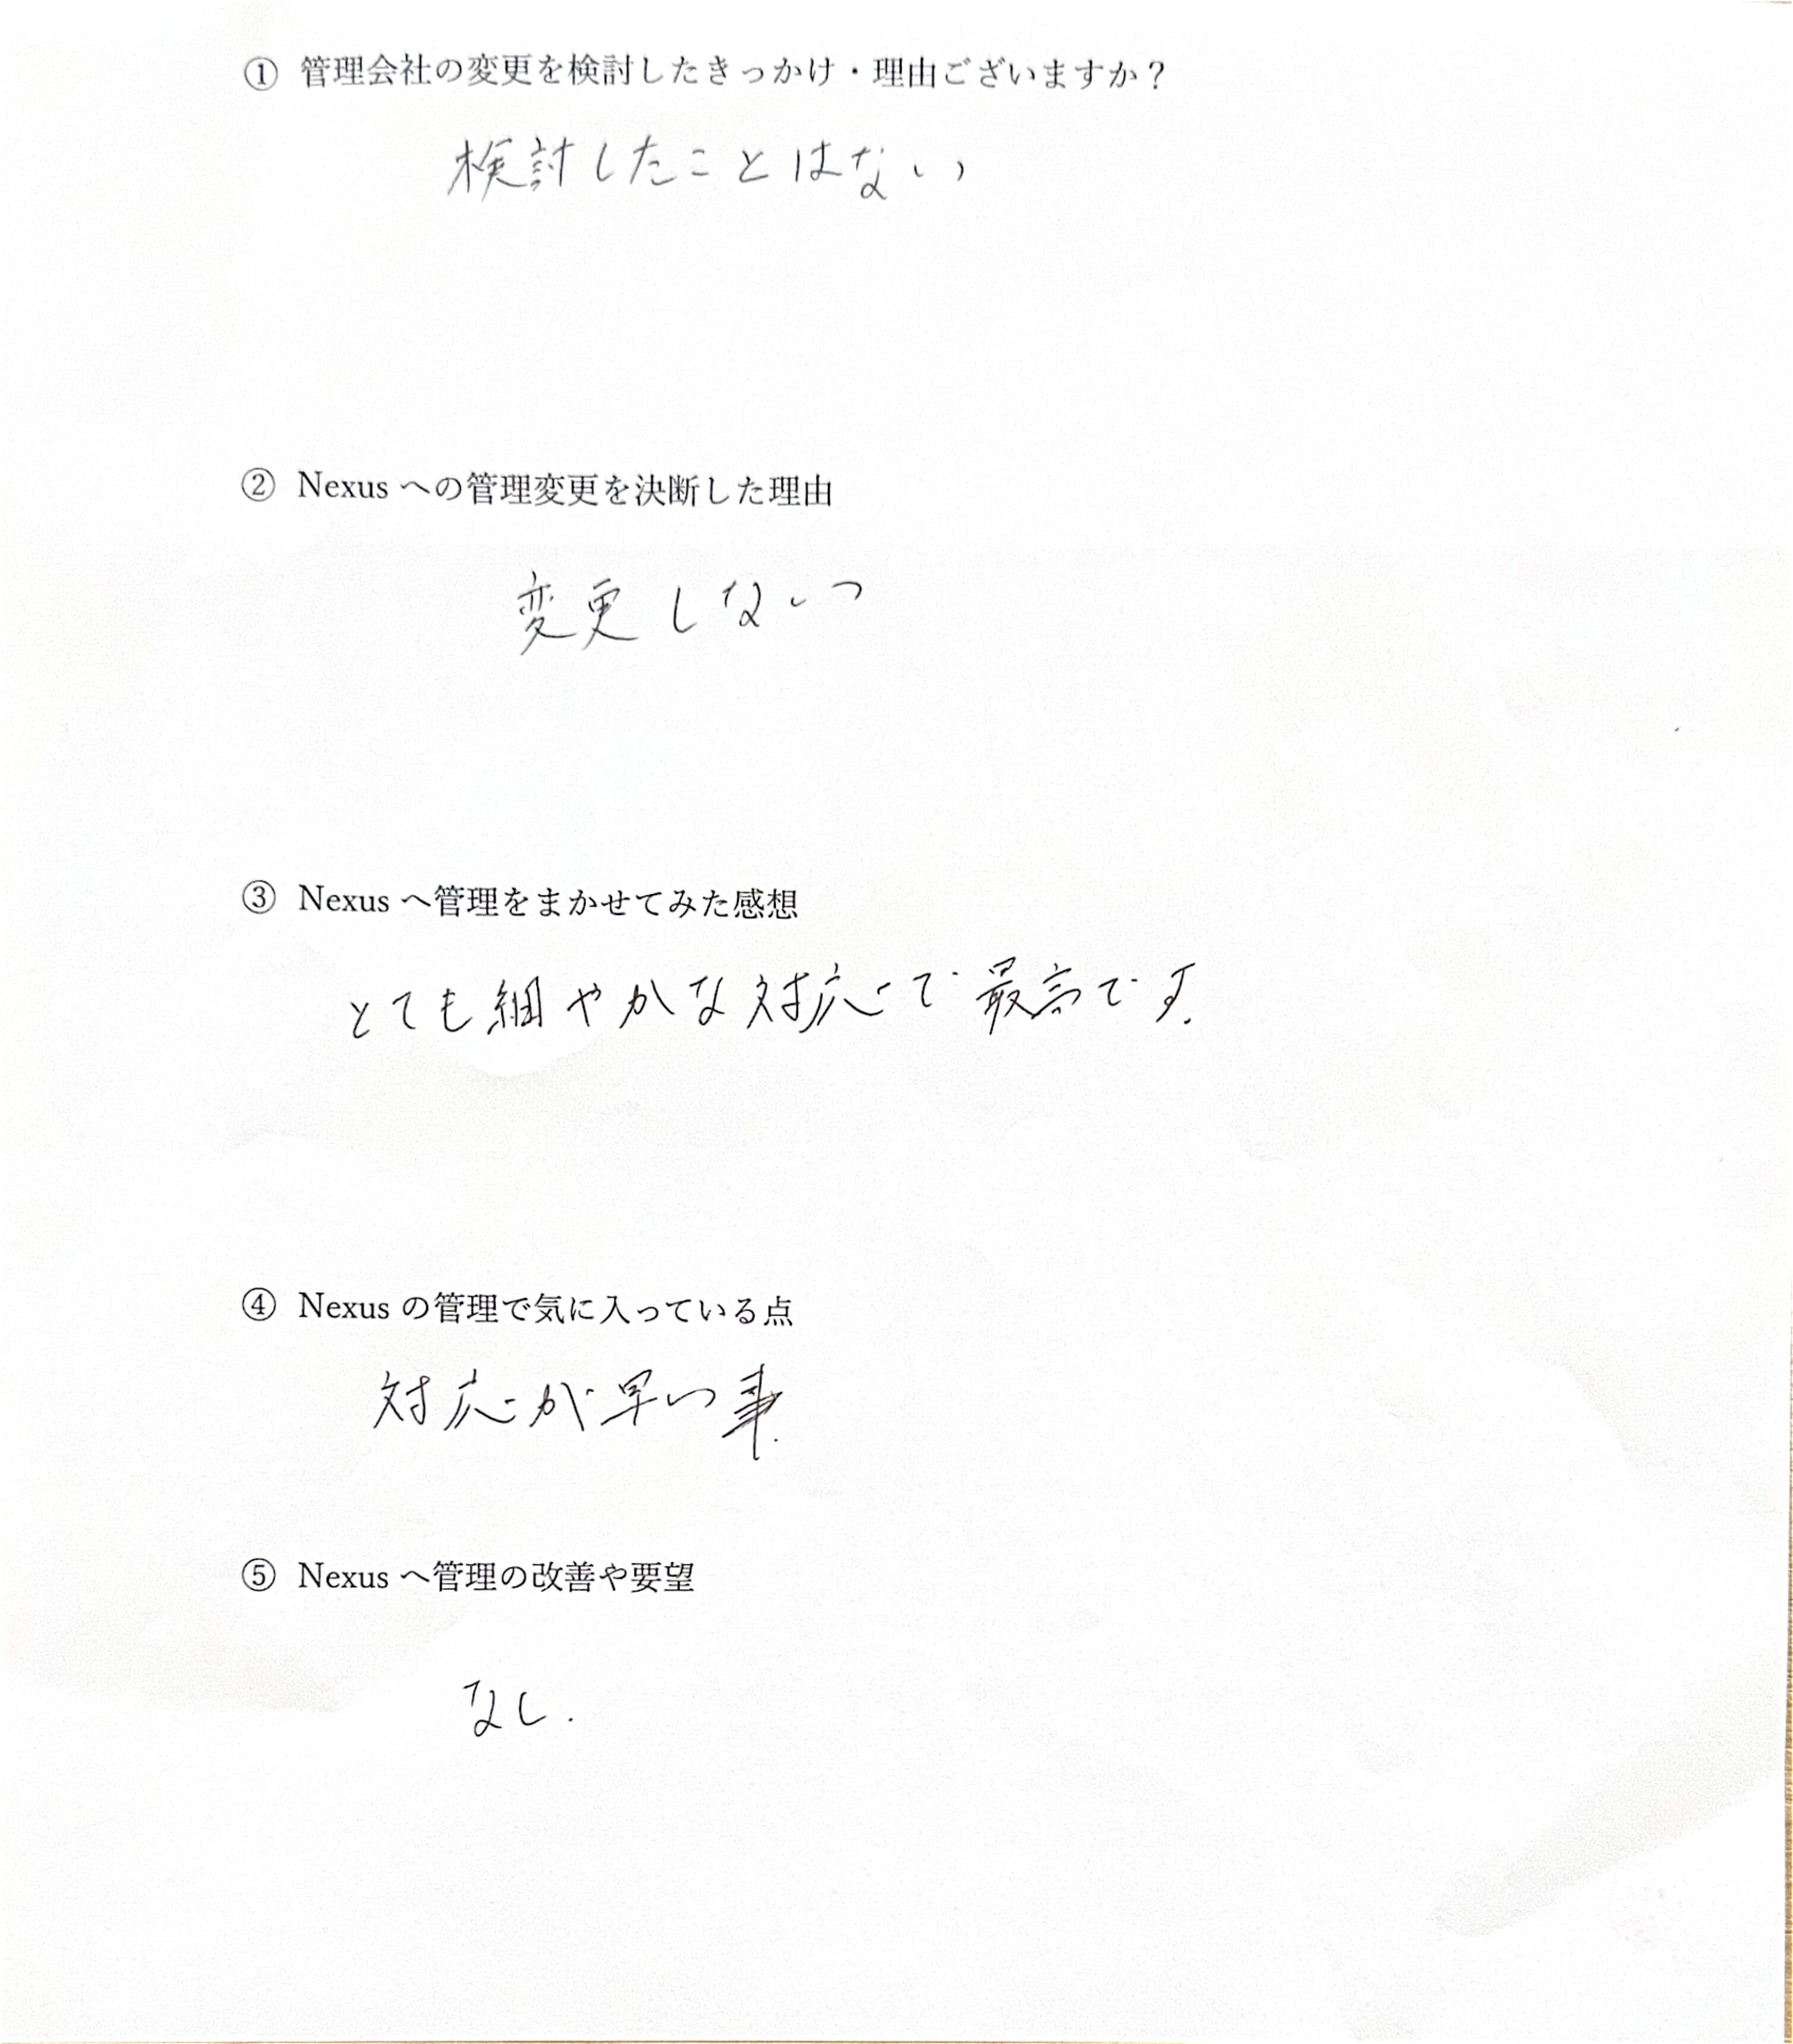 ① 管理会社の変更を検討したきっかけ・理由ございますか？
検討したことはない
② Nexus への管理変更を決断した理由
変更しない
③ Nexus へ管理をまかせてみた感想
とても細やかな対応で最高です.
④ Nexus の管理で気に入っている点
対応が早い事.
⑤ Nexus へ管理の改善や要望
なし.